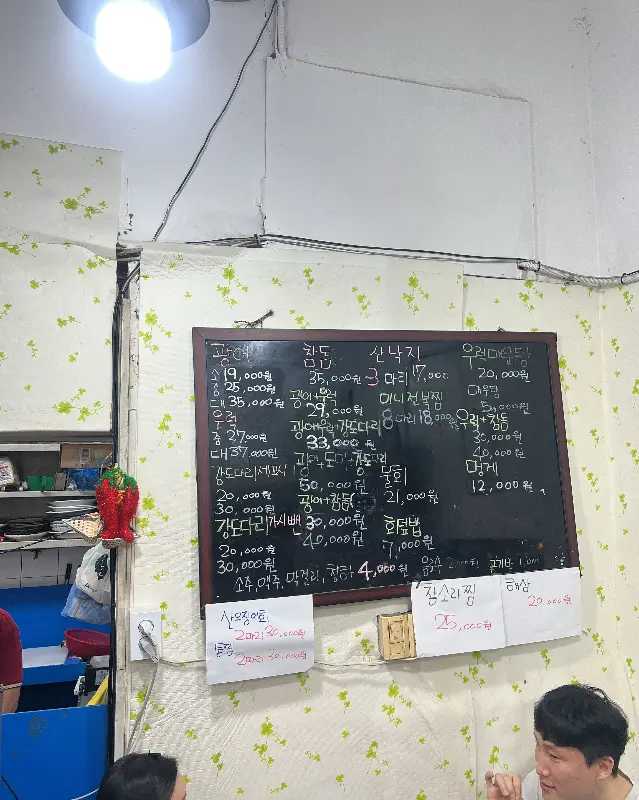 광어
소 19,000원
중 25,000원
대 35,000원
우럭
중 27,000원
대 37,000원
강도다리세꼬시
20,000원
30,000원
강도다리
20,000원
30,000원
참돔
35,000원
광어+우럭
29,000원
광어+우럭+강도다리
33,000원
광어+도미+강도다리
50,000원
광어+참돔
30,000원
40,000원
산낙지
3마리 17,000
미니전복찜
8마리 18,000원
물회
21,000원
회덮밥
7,000원
우럭매운탕
20,000원
대우럭
우럭+참돔
30,000원
40,000원
멍게
12,000원
소주, 맥주, 막걸리, 청하 4,000원 음료수 2,000원 공기밥 1,000
산오징어회
2마리 30,000원
통찜
2마리 30,000원
참소라찜
25,000원
해삼
20,000원